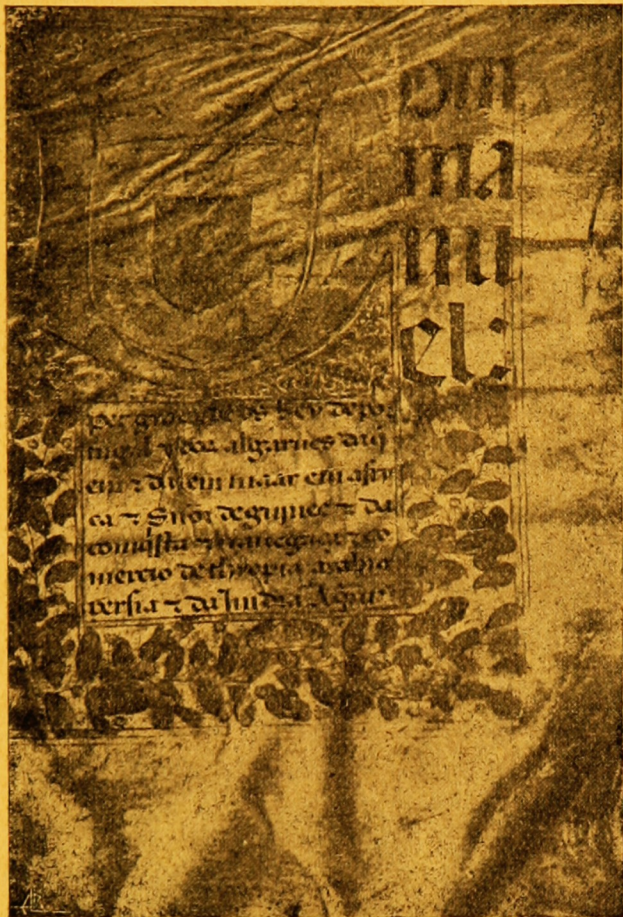 Dm
ma
nu
el:
per graça de ds Rey de por
tugal ⁊ dos algarues da q̃
em ⁊ dalem maar em afri
ca ⁊ Sñor de guinee ⁊ da
comq̃sta ⁊ nauegaçã ⁊ co
mercio de thyopia arabia
persia ⁊ da Jndia A